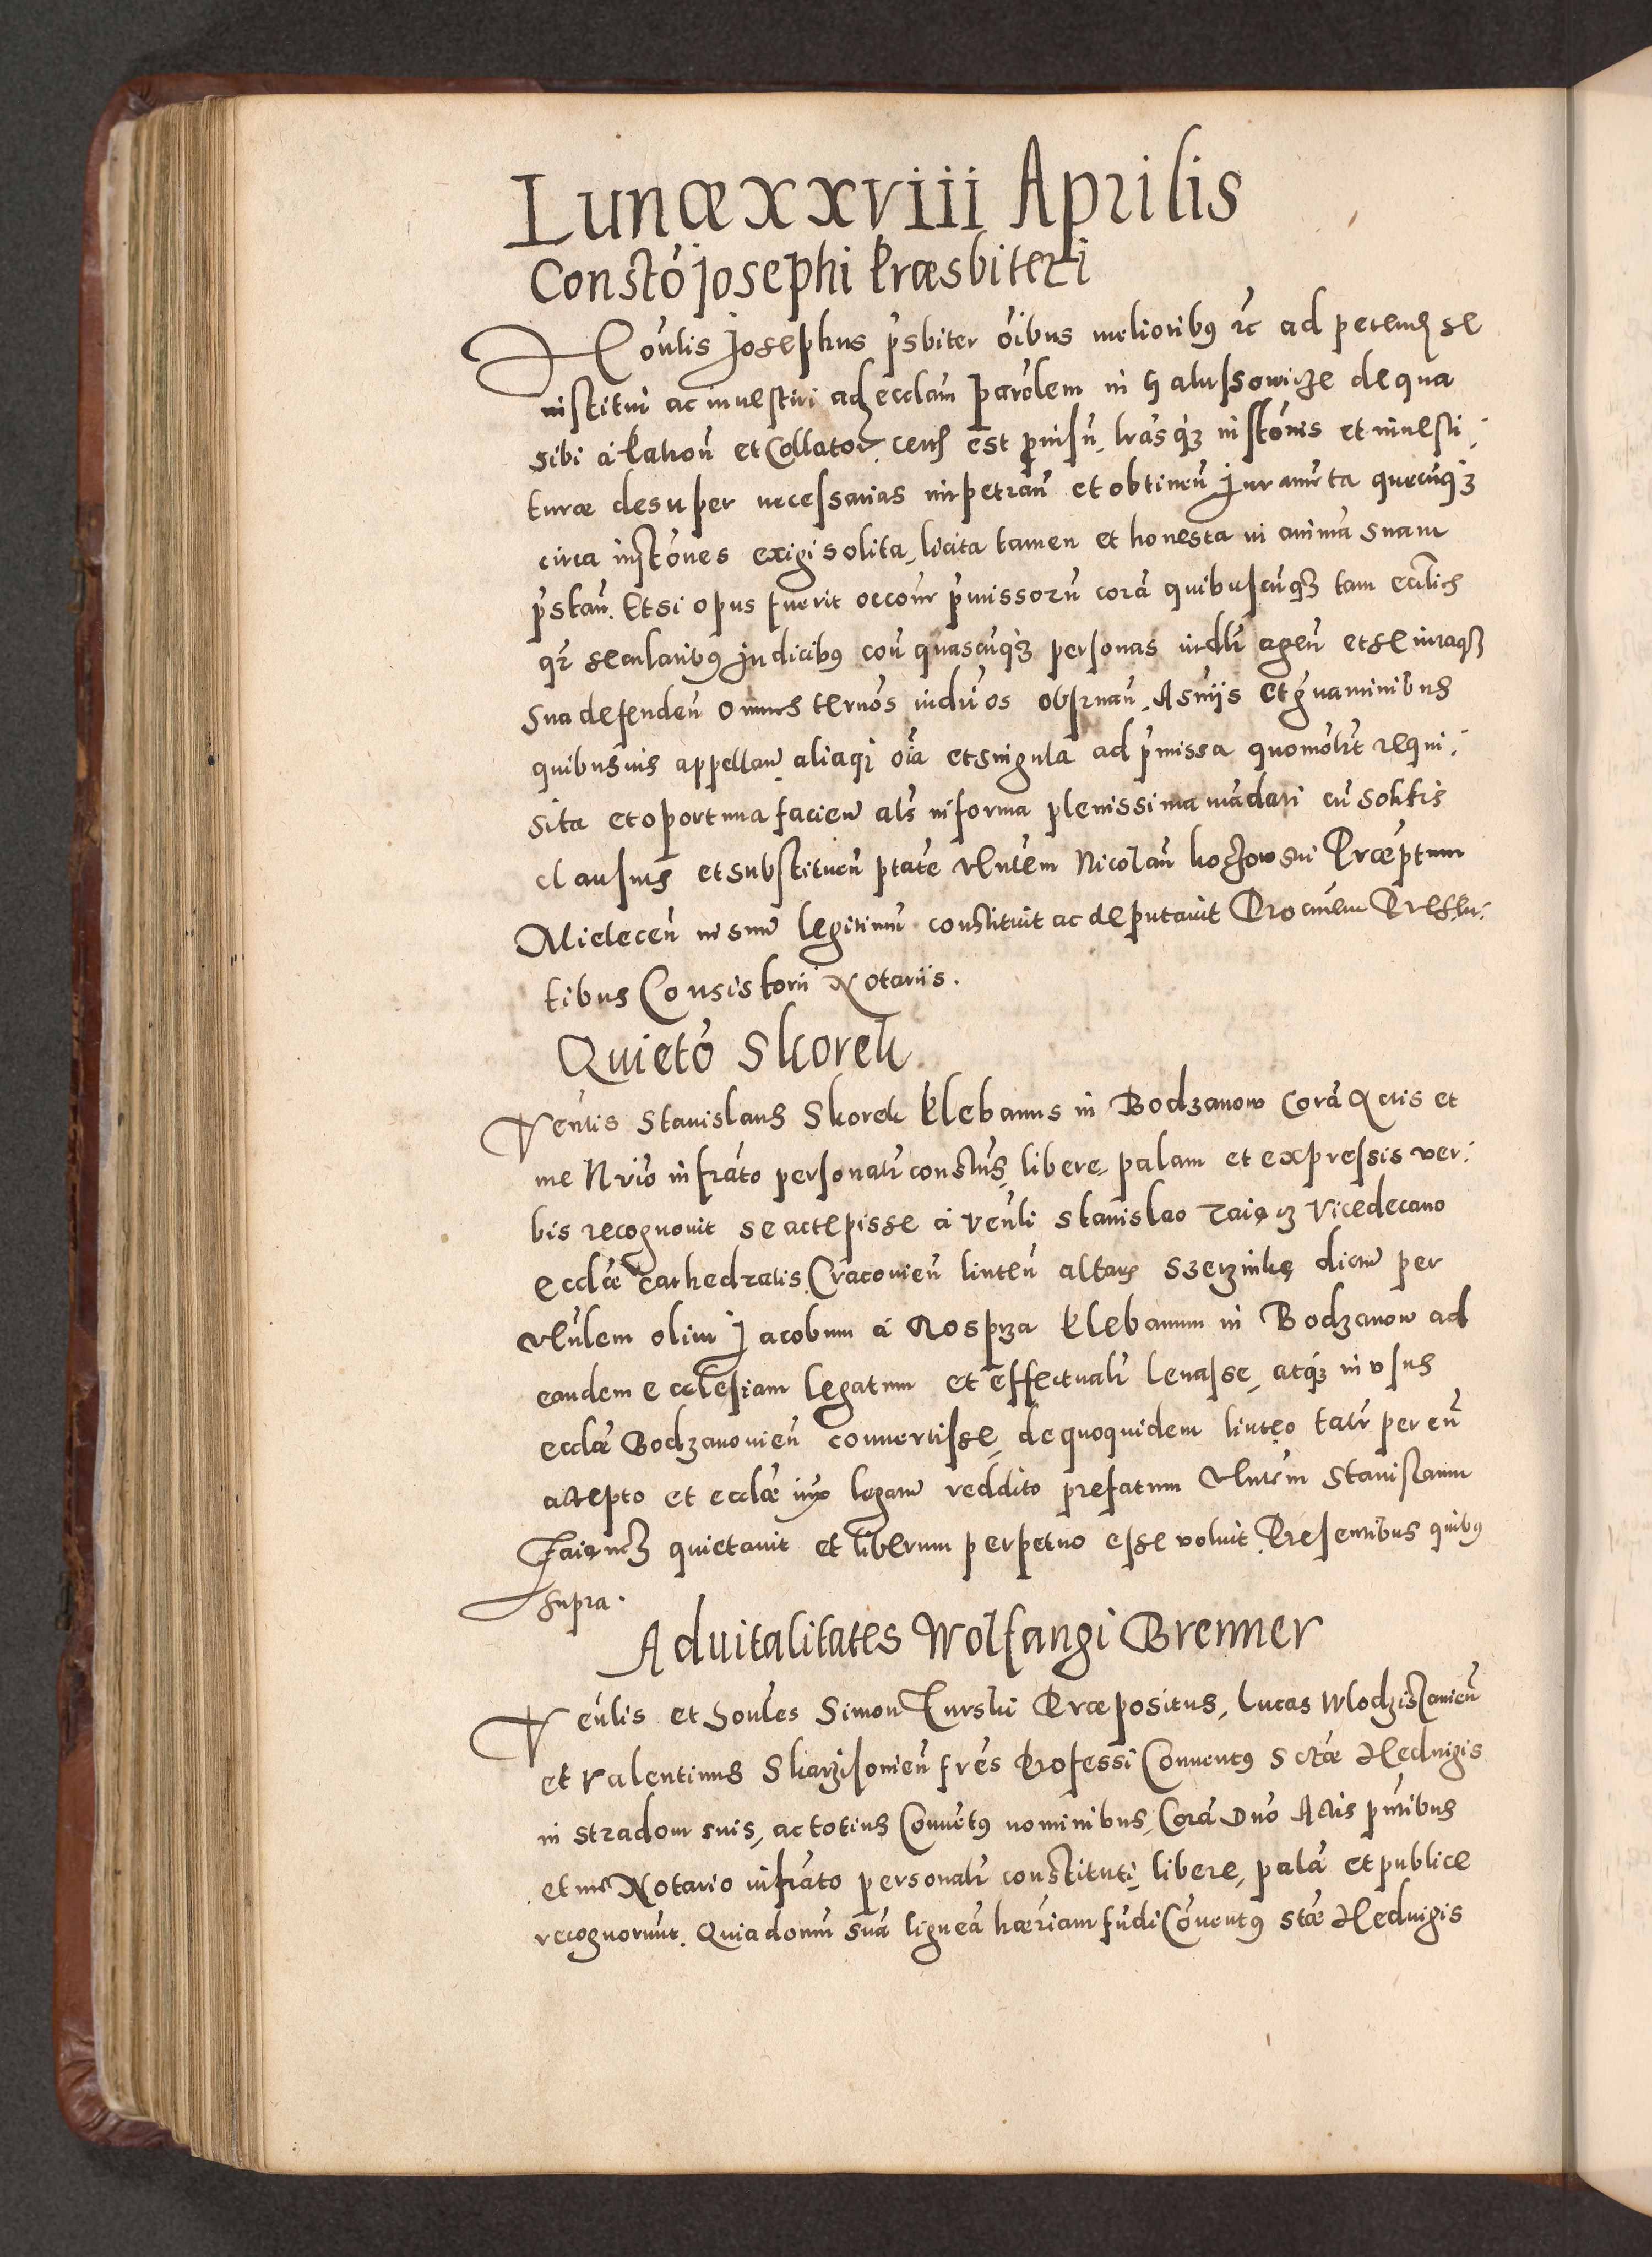 Lunæ xxviii Aprilis
Constō Josephi Præsbiteri
Hōulis Josephus p̄sbiter ōibus melioribꝰ rc̄ ad petend se
institui ac inuestiri ad eccl̄am parōlem in Halussowicze de qua
sibi a Patron̄ et Collator. cens est puisū, l̄ras qꝫ instōnis et inuesti
turæ desuper necessarias impetran̄ et obtinen̄ Juramēta quecūqꝫ
circa instōnes exigi solita, licita tamen et honesta in animā suam
p̄stan̄. Et si opus fuerit occon̄e p̄missorū corā quibuscūqꝫ tam eccl̄ich
q̄ꝫ secularibꝰ Judicibꝰ con̄ quascūqꝫ personas iudl̄r agen̄ et se iuraqꝫ
sua defenden̄ omnes ternōs iuduos obsruan̄. A sniis et g̃uaminibus
quibusuis appellan̄ aliaqꝫ oīa et singula ad p̄missa quomōlt̄ requi
sita et oportuna facien̄ al̄s in forma plenissima mādari cū solitis
clausulis et substituen̄ p̄tate Vēnlem Nicolaū Koszowski Præp̄tum
Mielecen̄ in suū legitimū constituit ac deputauit Procūrem Presen
tibus Consistorii Notariis.
Quietō Skorek
Venlis Stanislaus Skorek Plebanus in Bodzanow Corā Actis et
me Nrīo infrāto personalr̄ const̄us, libere, palam et expressis ver
bis recognouit se accepisse a Ven̄li Stanislao Vicedecano
eccl̄æ Cathedralis Cracouien̄ linteū altaris dictū per
Ven̄lem olim Jacobum a Rosprza Plebanum in Bodzanow ad
eandem ecclesiam legatum et effectualr̄ leuasse, atqꝫ in vsus
eccl̄æ Bodzanouien̄ conuertisse, de quoquidem linteo talr̄ per eū
accepto et eccl̄æ iuxa legatū reddito prefatum Ven̄lem Stanislaum
quietauit et liberum perpetuo esse voluit. Presentibus quibꝰ
supra.
Aduitalitates Wolfangi Brenner
Ven̄lis et honles Simon Turski Præpositus, Lucas Wlodzislauien̄
et Valentinus frēs Professi Conuentꝰ Sctæ Heduigis
in Stradom suis, ac totius Conuētꝰ nominibus, Corā Dnō Actis pn̄tibus
et me Notario infrāto personalr̄ constituti, libere, palā et publice
recognorūnt. Quia domū suā ligneā hæriam fūdi Cōuentꝰ Stæ Heduigis